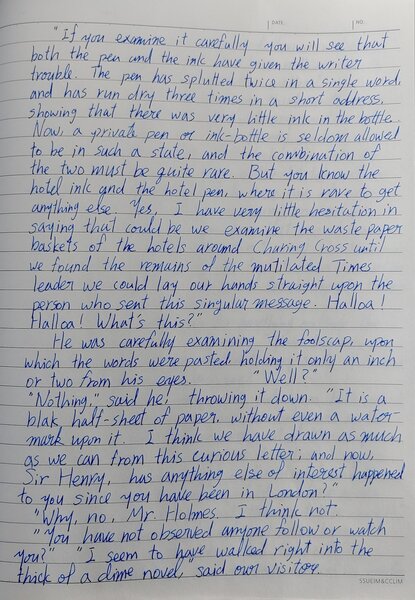 DATE. NO.
"If you examine it carefully you will see that
both the pen and the ink have given the writer
trouble. The pen has splutted twice in a single word,
and has run dry three times in a short address,
showing that there was very little ink in the bottle.
Now, a private pen or ink-bottle is seldom allowed
to be in such a state, and the combination of
the two must be quite rare. But you know the
hotel ink and the hotel pen, where it is rare to get
anything else. Yes, I have very little hesitation in
saying that could be we examine the waste paper
baskets of the hotels around Charing Cross until
we found the remains of the mutilated Times
leader we could lay our hands straight upon the
person who sent this singular message. Halloa!
Halloa! What's this?"
He was carefully examining the foolscap, upon
which the words were pasted holding it only an inch
or two from his eyes. "Well?"
"Nothing," said he, throwing it down. "It is a
blak half-sheet of paper, without even a water-
mark upon it. I think we have drawn as much
as we can from this curious letter; and now,
Sir Henry, has anything else of interest happened
to you since you have been in London?"
"Why, no, Mr. Holmes. I think not.
"You have not observed anyone follow or watch
you?" "I seem to have walked right into the
thick of a dime novel," said our visitor.
SSUEIM&CCLIM